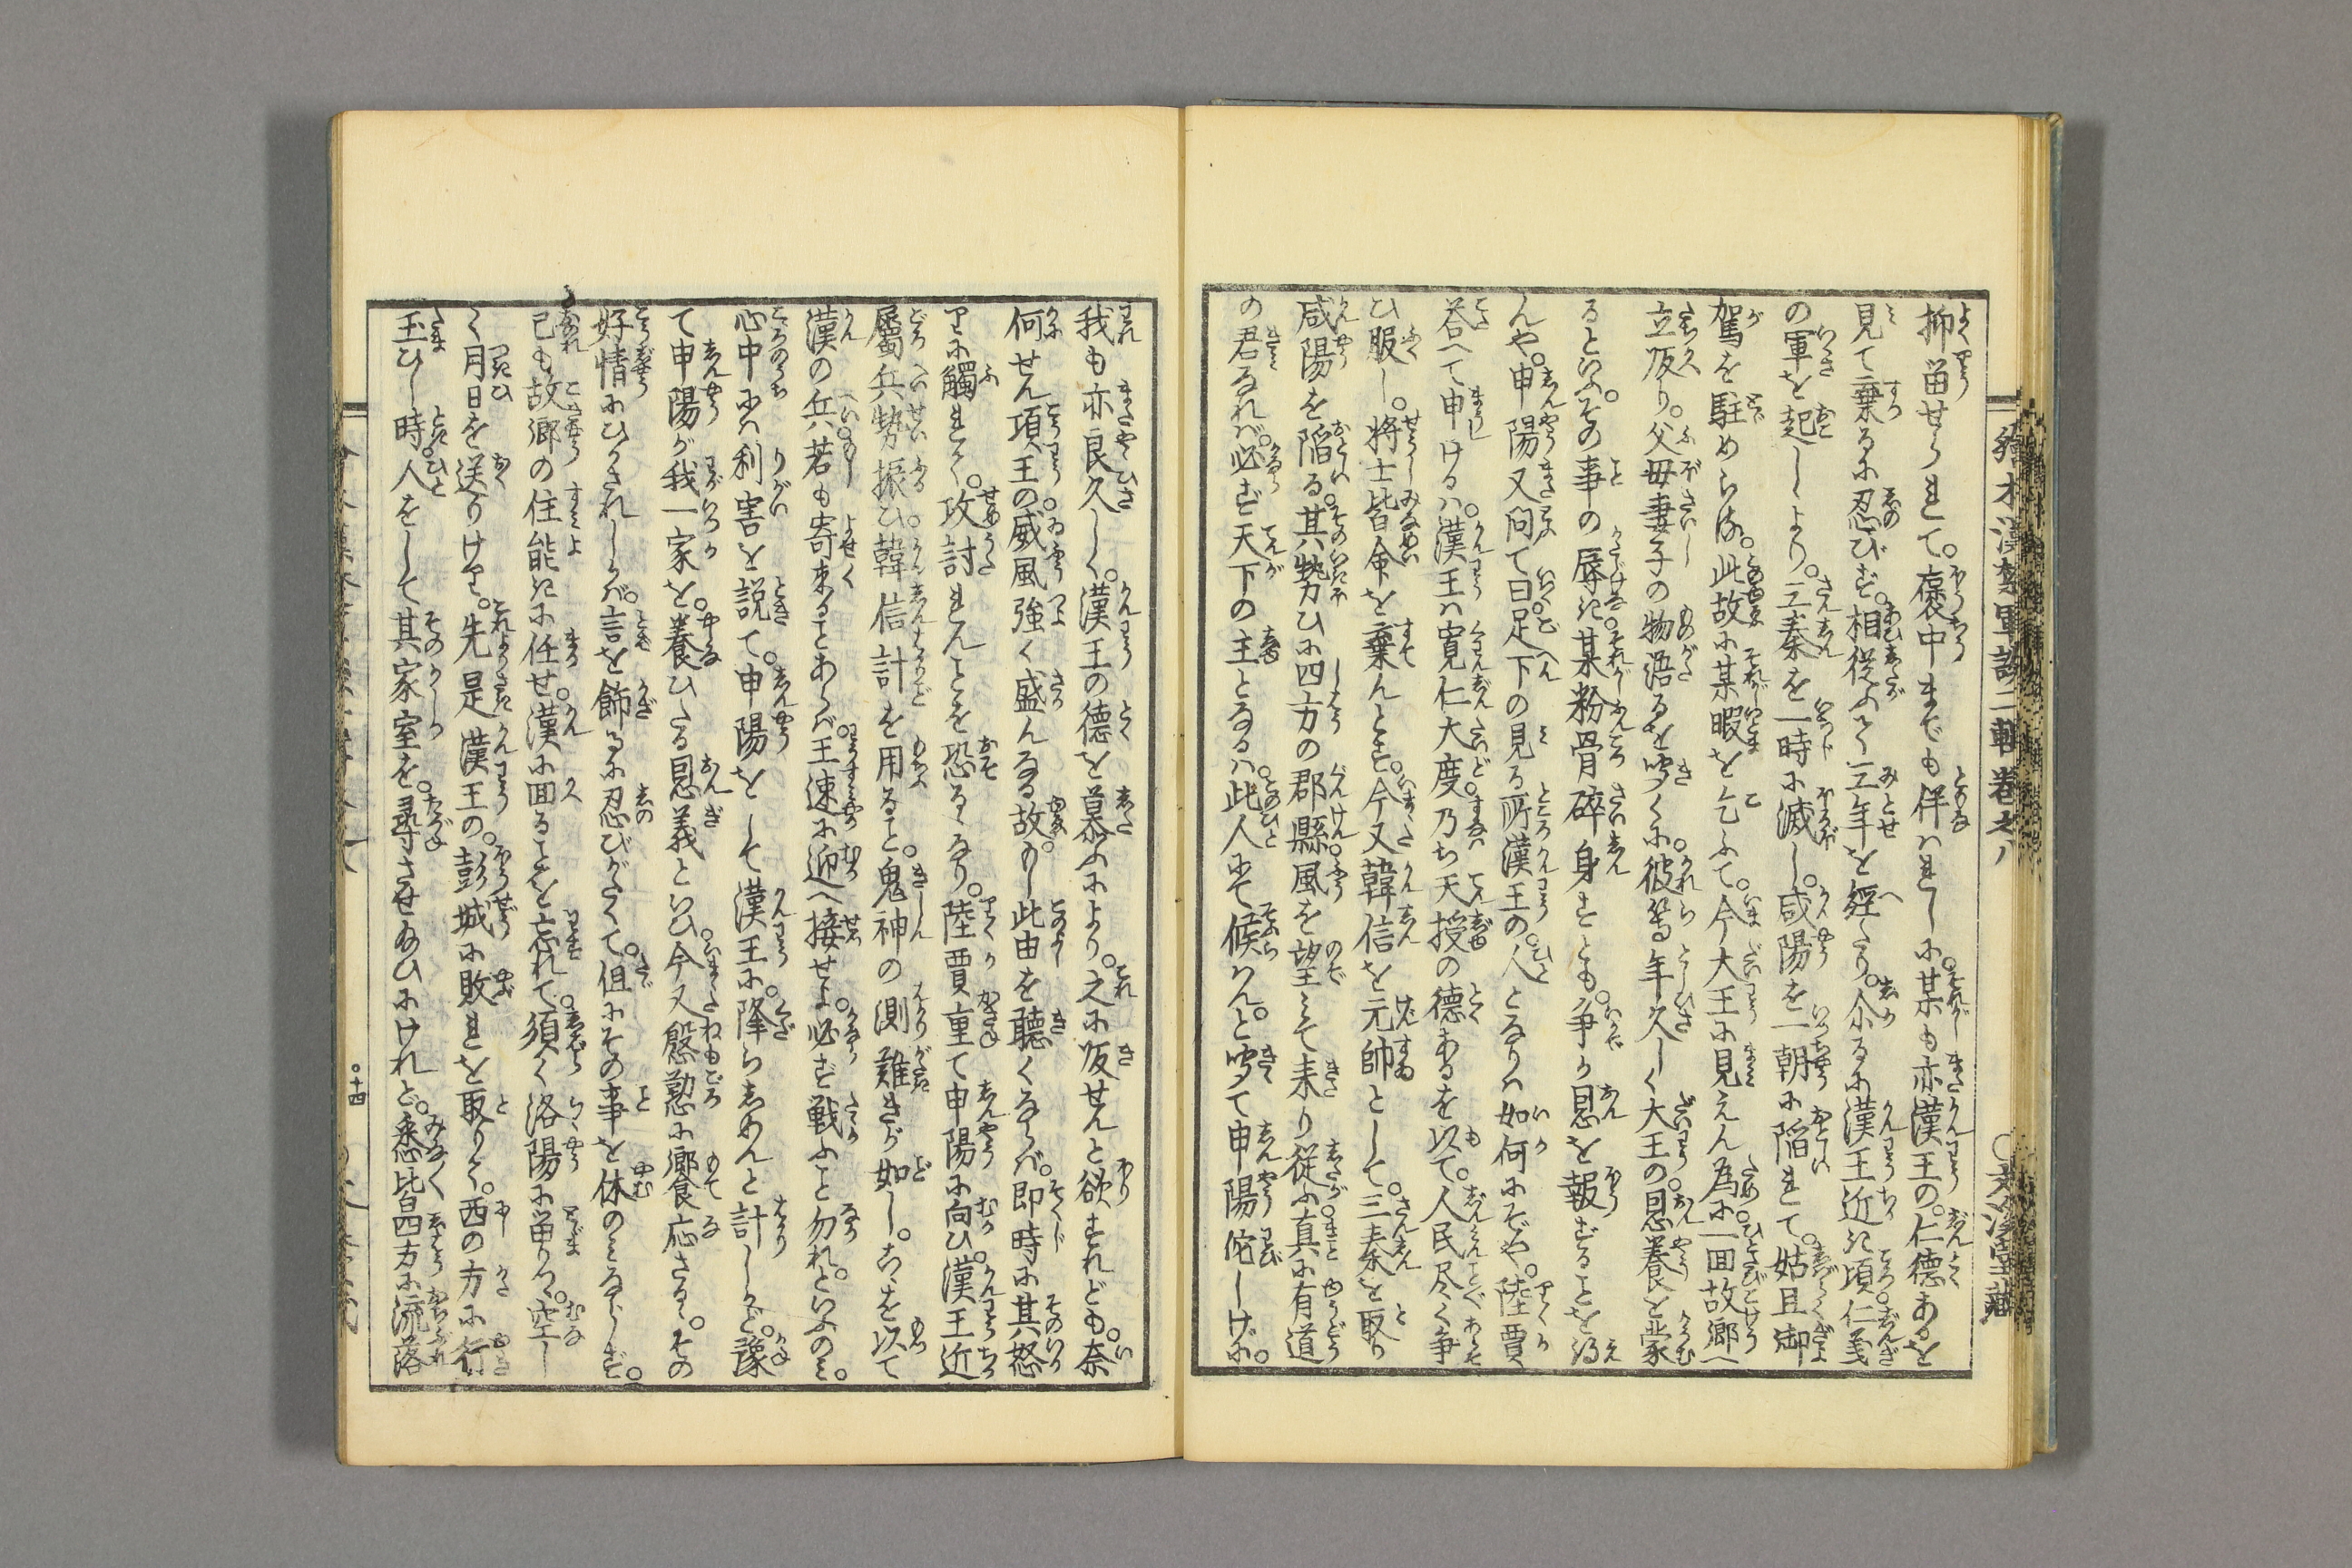 繪本漢楚軍談二輯卷之八
抑留せられて。褒中までも伴はれしに。某も亦漢王の。仁徳あるを
見て棄るに忍びず。相從ふて三年を經たり。尓るに漢王近き頃仁義
の軍を起しより。三秦を一時に滅し。咸陽を一朝に陥れて。姑且御
駕を駐めらる。此故に某暇を乞ふて。今大王に見えん為に。一回故郷へ
立皈り。父母妻子の物語るを聞くに。彼等年久しく大王の。恩養を蒙
るといふ。その事の辱き。某粉骨碎身すとも。争か恩を報ずることを得
んや。申陽又問て曰足下の見る所漢王の。人となりは如何にぞや。陸賈
荅へて申けるは。漢王は寛仁大度乃ち天授の徳あるを以て。人民尽く争
ひ服し。将士皆命を棄んとす。今又韓信を元帥として。三秦を取り
咸陽を陥る。其勢ひに四方の郡縣。風を望みて来り從ふ。真に有道
の君なれば。必ず天下の主となるは。此人にて候はん。と聞て申陽侘しげに。
我も亦良久しく。漢王の徳を慕ふにより。之に皈せんと欲すれども。奈
何せん項王の。威風強く盛んなる故。もし此由を聽くならば。即時に其怒
りに觸れて。攻討れんことを恐るゝなり。陸賈重て申陽に向ひ。漢王近
屬兵勢振ひ。韓信計を用ること。鬼神の測難きが如し。こゝを以て
漢の兵。若も寄来ることあらば。王速に迎へ接せよ。必ず戦ふこと勿れ。といふのミ。
心中には利害を説て。申陽をして漢王に。降らしめんと計しかど。豫
て申陽が我一家を。養ひたる恩義といひ。今又慇懃に。饗應さるゝ。その
好情にひかされしかば。言を飾るに忍びがたくて。但にその事を休のミならず。
己も故郷の住能きに任せ。漢に回ることを忘れて。須く洛陽に留りつ。空し
く月日を送りけり。先是漢王の。彭城に敗れを取りて。西の方に行
玉ひし時。人をして其家室を。尋させ玉ひにけれど。悉皆四方に流落
十四